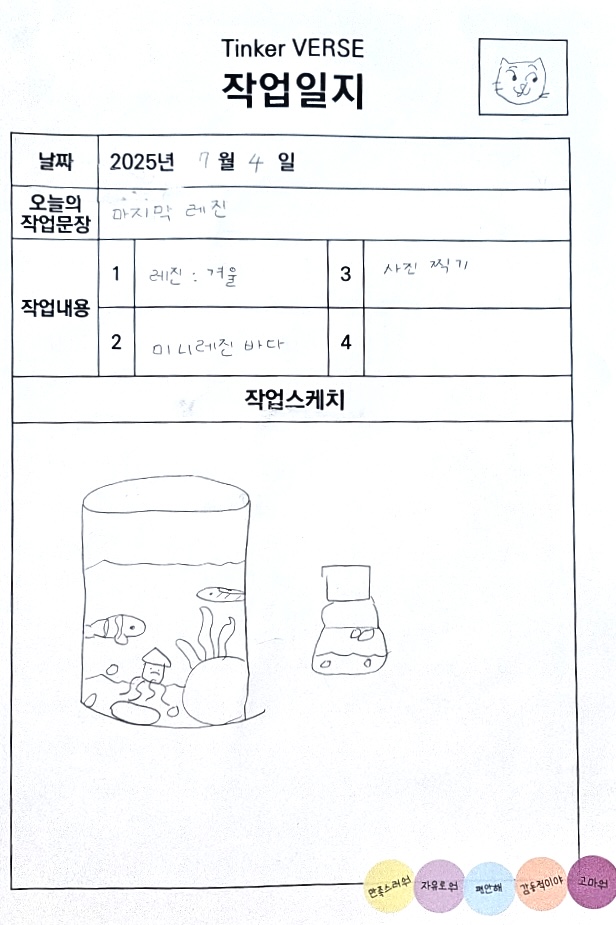 Tinker VERSE
작업일지
날짜 2025년 7월 4일
오늘의 작업문장 마지막 레진
작업내용
1 레진 : 겨울
3 사진 찍기
2 미니레진 바다
4
작업스케치
만족스러워 자유로워 편안해 감동적이야 고마워